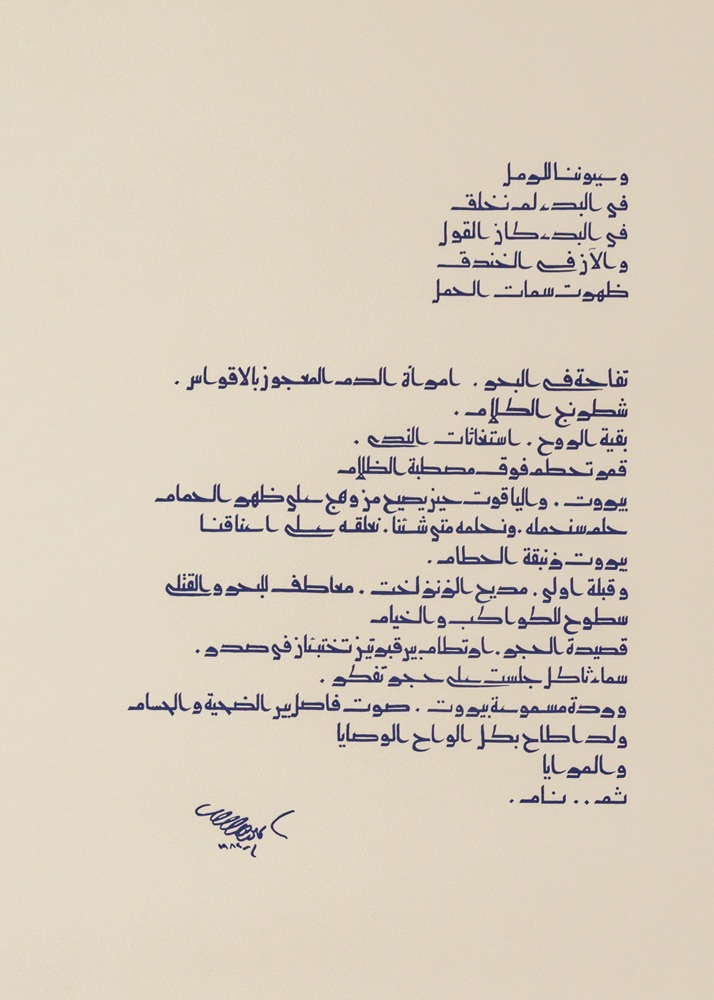 وبيوتنا للرمل
في البدء لم نخلق
في البدء كان القول
والآن في الخندق
ظهرت سمات الحمل
تفاحة في البحر . امرأة الدم المعجون بالاقواس .
شطرنج الكلام .
بقية الروح . استغاثات الندى .
قمر تحطم فوق مصطبة الظلام
بيروت . والياقوت حين يصيح من وهج على ظهر الحمام
حلم سنحمله . ونحلمه متى شئنا . نعلقه على اعناقنا
بيروت زنبقة الحطام .
وقبلة اولى . مديح الزنزلخت . معاطف للبحر والقتلى
سطوح للكواكب والخيام
قصيدة الحجر . ارتطام بين قبرتين تختبئان في صدر .
سماء ثاكل جلست على حجر تفكر .
وردة مسموعة بيروت . صوت فاصل بين الضحية والحسام
ولد اطاح بكل الواح الوصايا
والمرايا
ثم .. نام .